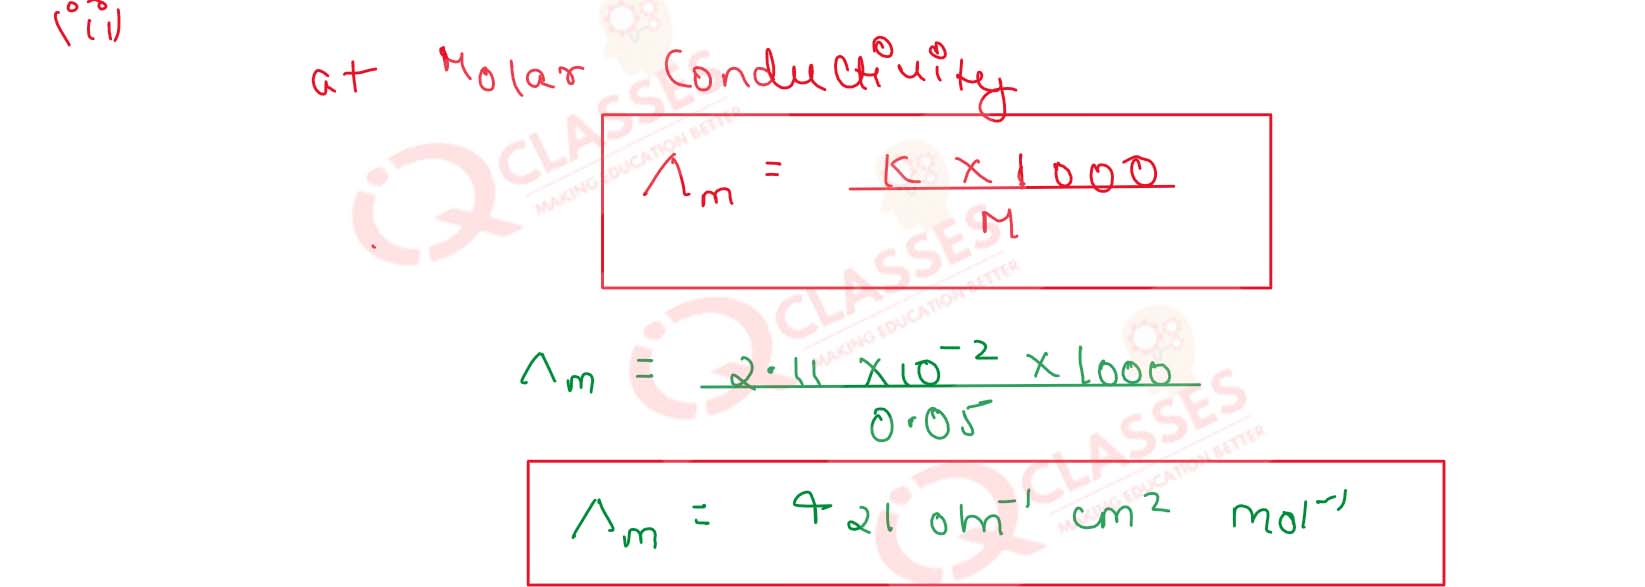 (ii)
at Molar Conductivity
Λm = K × 1000
M
Λm = 2.11 × 10⁻² × 1000
0.05
Λm = 421 ohm⁻¹ cm² mol⁻¹
iQ CLASSES
MAKING EDUCATION BETTER
iQ CLASSES
MAKING EDUCATION BETTER
iQ CLASSES
MAKING EDUCATION BETTER